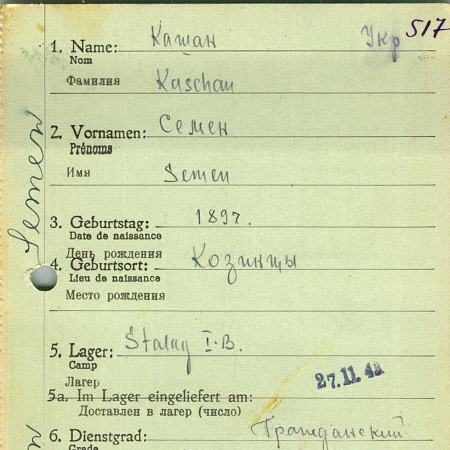 517
1. Name: Кашан Укр
Nom
Фамилия Kaschan
2. Vornamen: Семен
Prénoms
Имя Semen
Semen
3. Geburtstag: 1897.
Date de naissance
День рождения
4. Geburtsort: Козинцы
Lieu de naissance
Место рождения
5. Lager: Stalag I.B.
Camp
Лагерь
27.11.43
5a. Im Lager eingeliefert am:
Доставлен в лагерь (число)
6. Dienstgrad: Гражданский
Grade